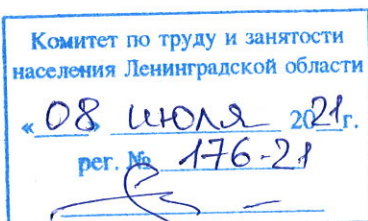 Комитет по труду и занятости
населения Ленинградской области
«08» июля 2021г.
рег. № 176-21